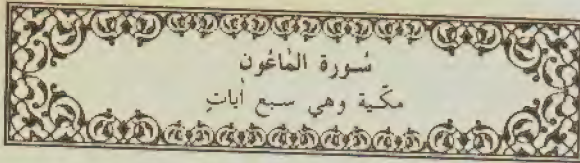 سُورة المَاعُون
مكّية وهي سبع أياتٍ